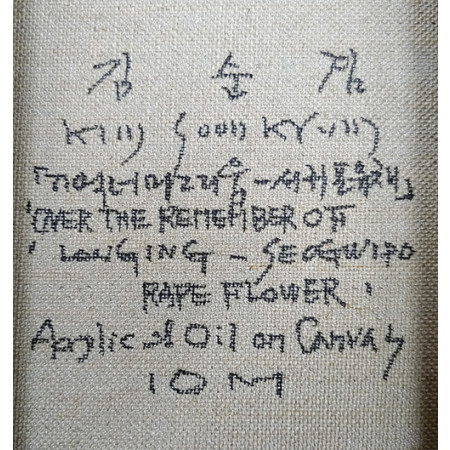 김 순 겸
KIM SOON KYUM
「기억너머그리움-서귀포유채」
'OVER THE REMEMBER OF
' LONGING - SEOGWIPO
RAPE FLOWER '
Acrylic & Oil on Canvas
10 M